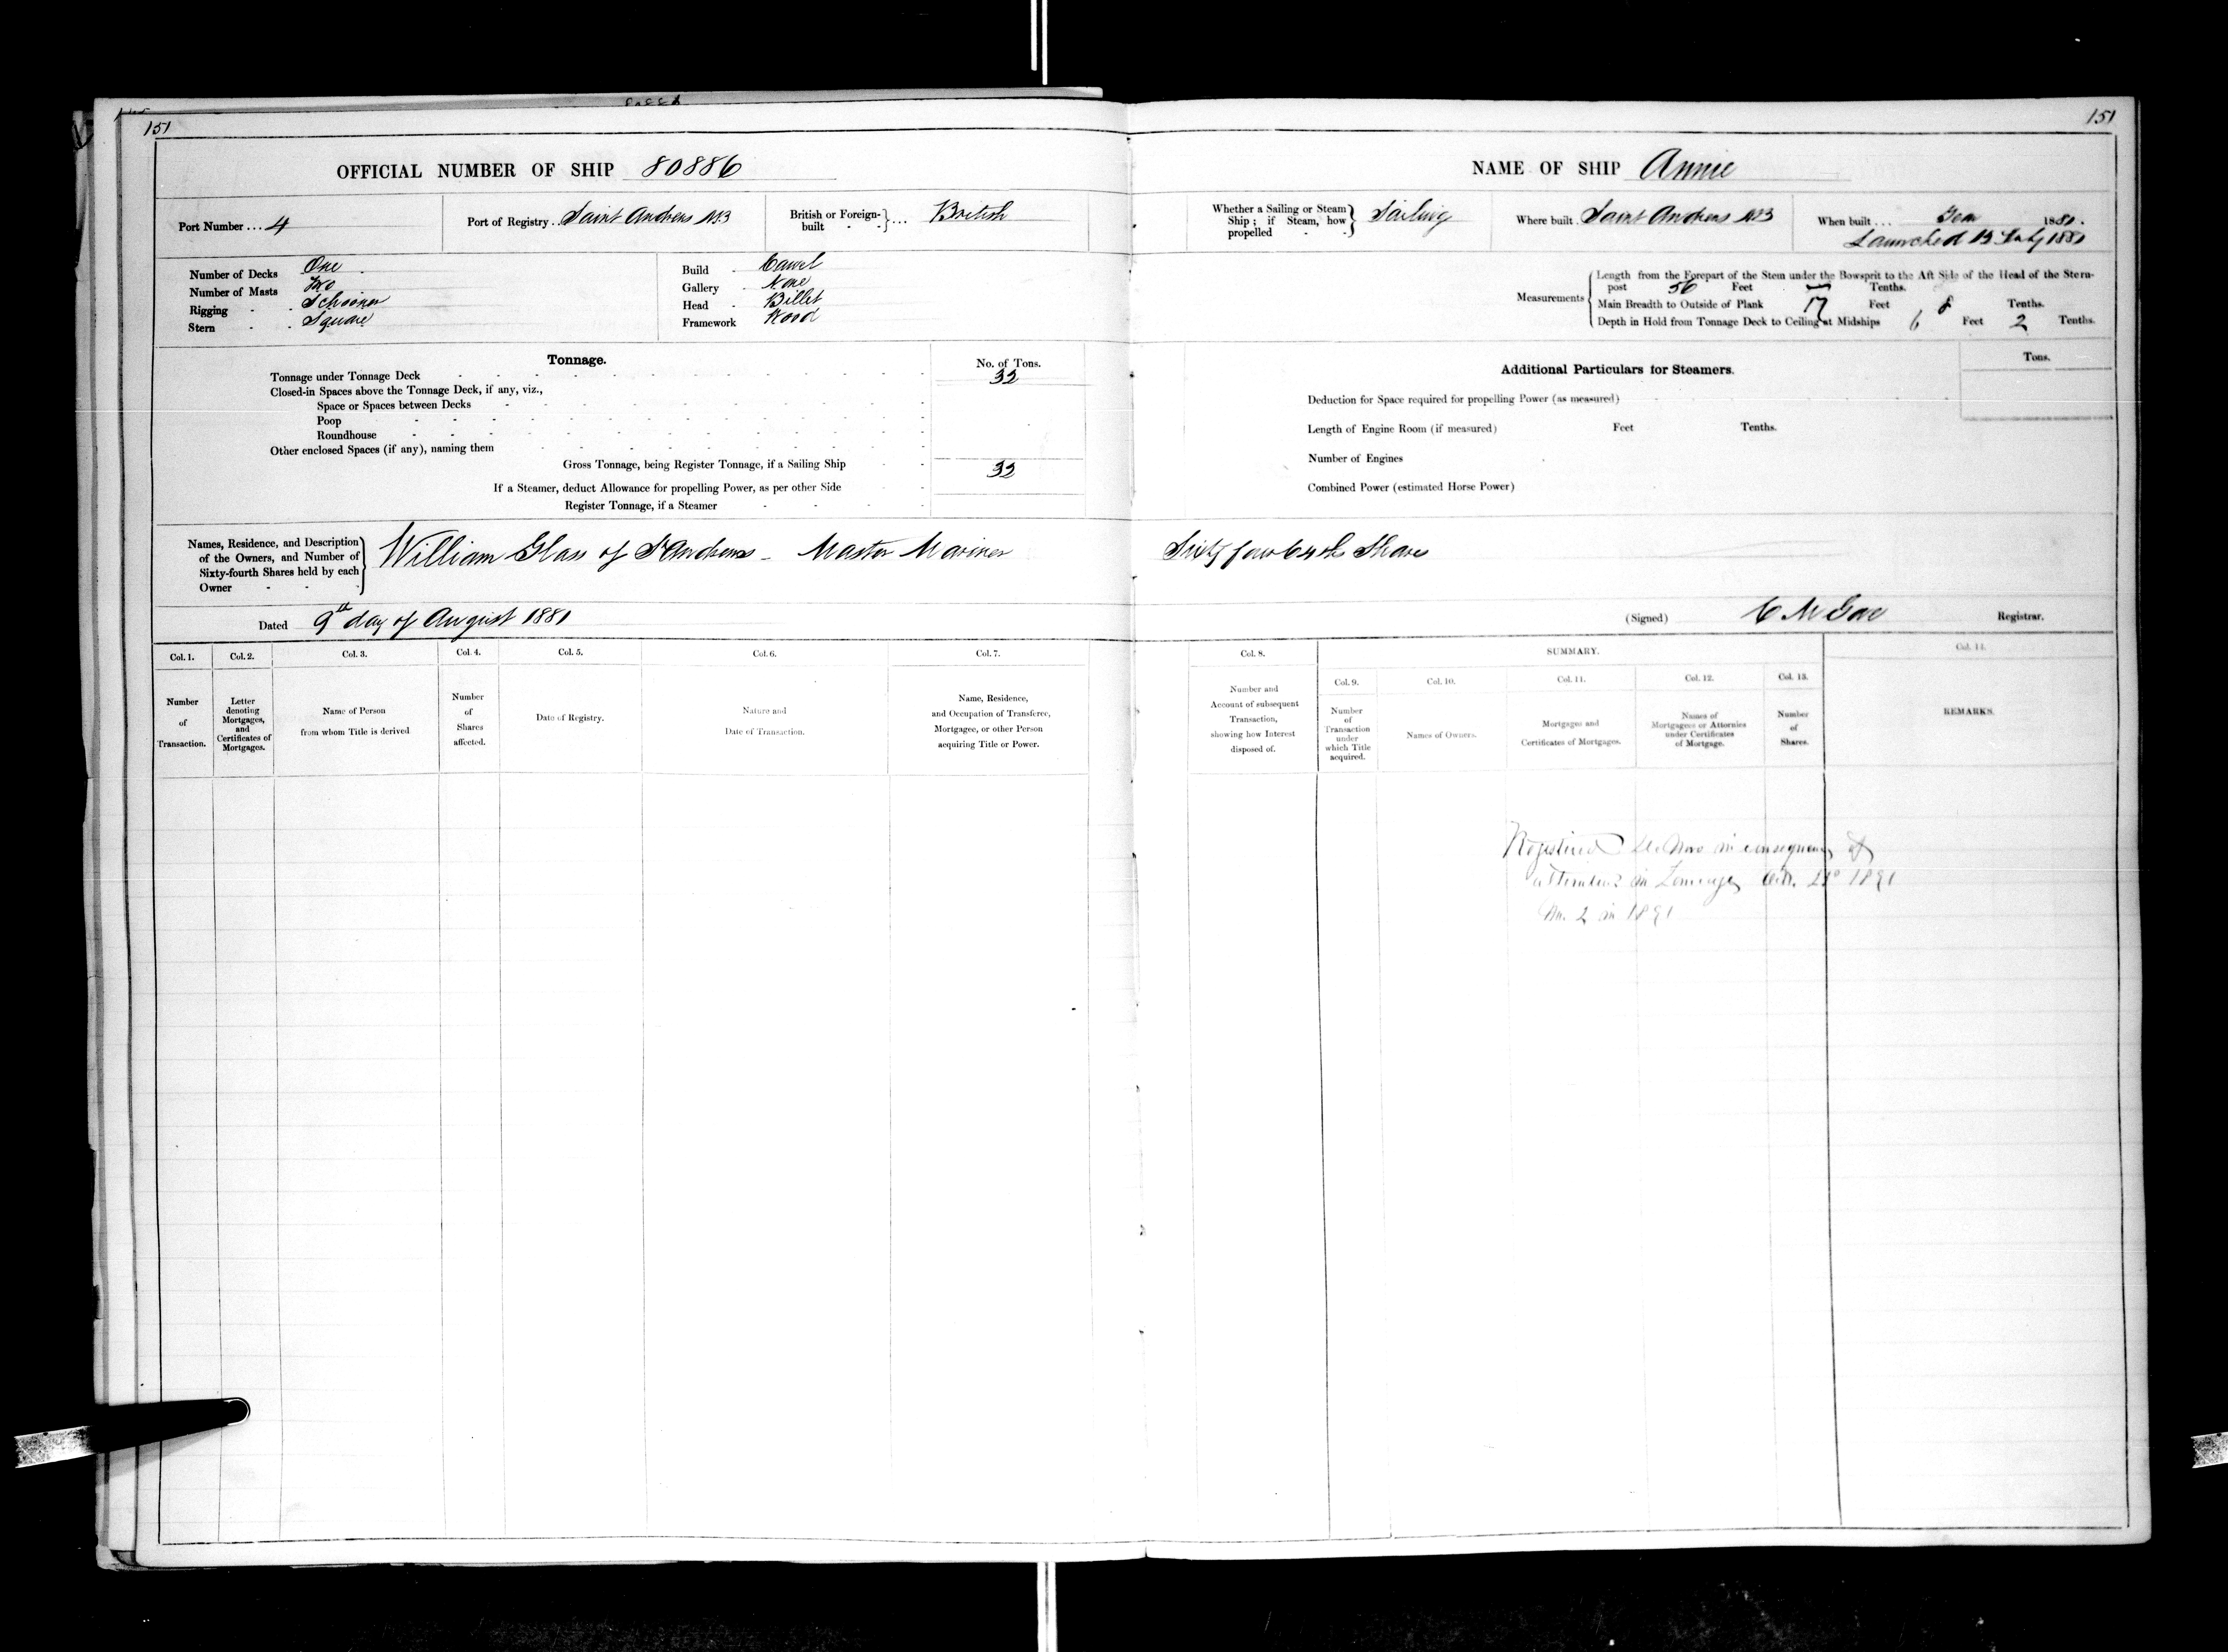 151
151
OFFICIAL NUMBER OF SHIP 80886
NAME OF SHIP Annie
Port Number ... 4
Port of Registry .. Saint Andrews NB
British or Foreign-built - - } ... British
Whether a Sailing or Steam Ship; if Steam, how propelled - - } Sailing
Where built . Saint Andrews NB
When built ... Year 1881.
Launched 13 July 1881
Number of Decks One
Number of Masts Two
Rigging - - Schooner
Stern - - Square
Build - Carvel
Gallery - None
Head - Billet
Framework Wood
Measurements
Length from the Forepart of the Stem under the Bowsprit to the Aft Side of the Head of the Stern-
post 56 Feet — Tenths.
Main Breadth to Outside of Plank 17 Feet 8 Tenths.
Depth in Hold from Tonnage Deck to Ceiling at Midships 6 Feet 2 Tenths.
Tonnage.
No. of Tons.
Tonnage under Tonnage Deck 32
Closed-in Spaces above the Tonnage Deck, if any, viz.,
Space or Spaces between Decks
Poop
Roundhouse
Other enclosed Spaces (if any), naming them
Gross Tonnage, being Register Tonnage, if a Sailing Ship 32
If a Steamer, deduct Allowance for propelling Power, as per other Side
Register Tonnage, if a Steamer
Additional Particulars for Steamers.
Tons.
Deduction for Space required for propelling Power (as measured)
Length of Engine Room (if measured) Feet Tenths.
Number of Engines
Combined Power (estimated Horse Power)
Names, Residence, and Description
of the Owners, and Number of
Sixty-fourth Shares held by each
Owner - - -
William Glass of St Andrews - Master Mariner Sixty four 64th Shares
Dated 9th day of August 1881
(Signed) C M Gove Registrar.
Col. 1.
Number
of
Transaction.
Col. 2.
Letter
denoting
Mortgages,
and
Certificates of
Mortgages.
Col. 3.
Name of Person
from whom Title is derived
Col. 4.
Number
of
Shares
affected.
Col. 5.
Date of Registry.
Col. 6.
Nature and
Date of Transaction.
Col. 7.
Name, Residence,
and Occupation of Transferee,
Mortgagee, or other Person
acquiring Title or Power.
Col. 8.
Number and
Account of subsequent
Transaction,
showing how Interest
disposed of.
SUMMARY.
Col. 9.
Number
of
Transaction
under
which Title
acquired.
Col. 10.
Names of Owners.
Col. 11.
Mortgages and
Certificates of Mortgages.
Col. 12.
Names of
Mortgagees or Attornies
under Certificates
of Mortgage.
Col. 13.
Number
of
Shares.
Col. 14.
REMARKS.
Registered de Novo in consequence of
alterations in Tonnage Oct. 1891
No. 2 in 1891